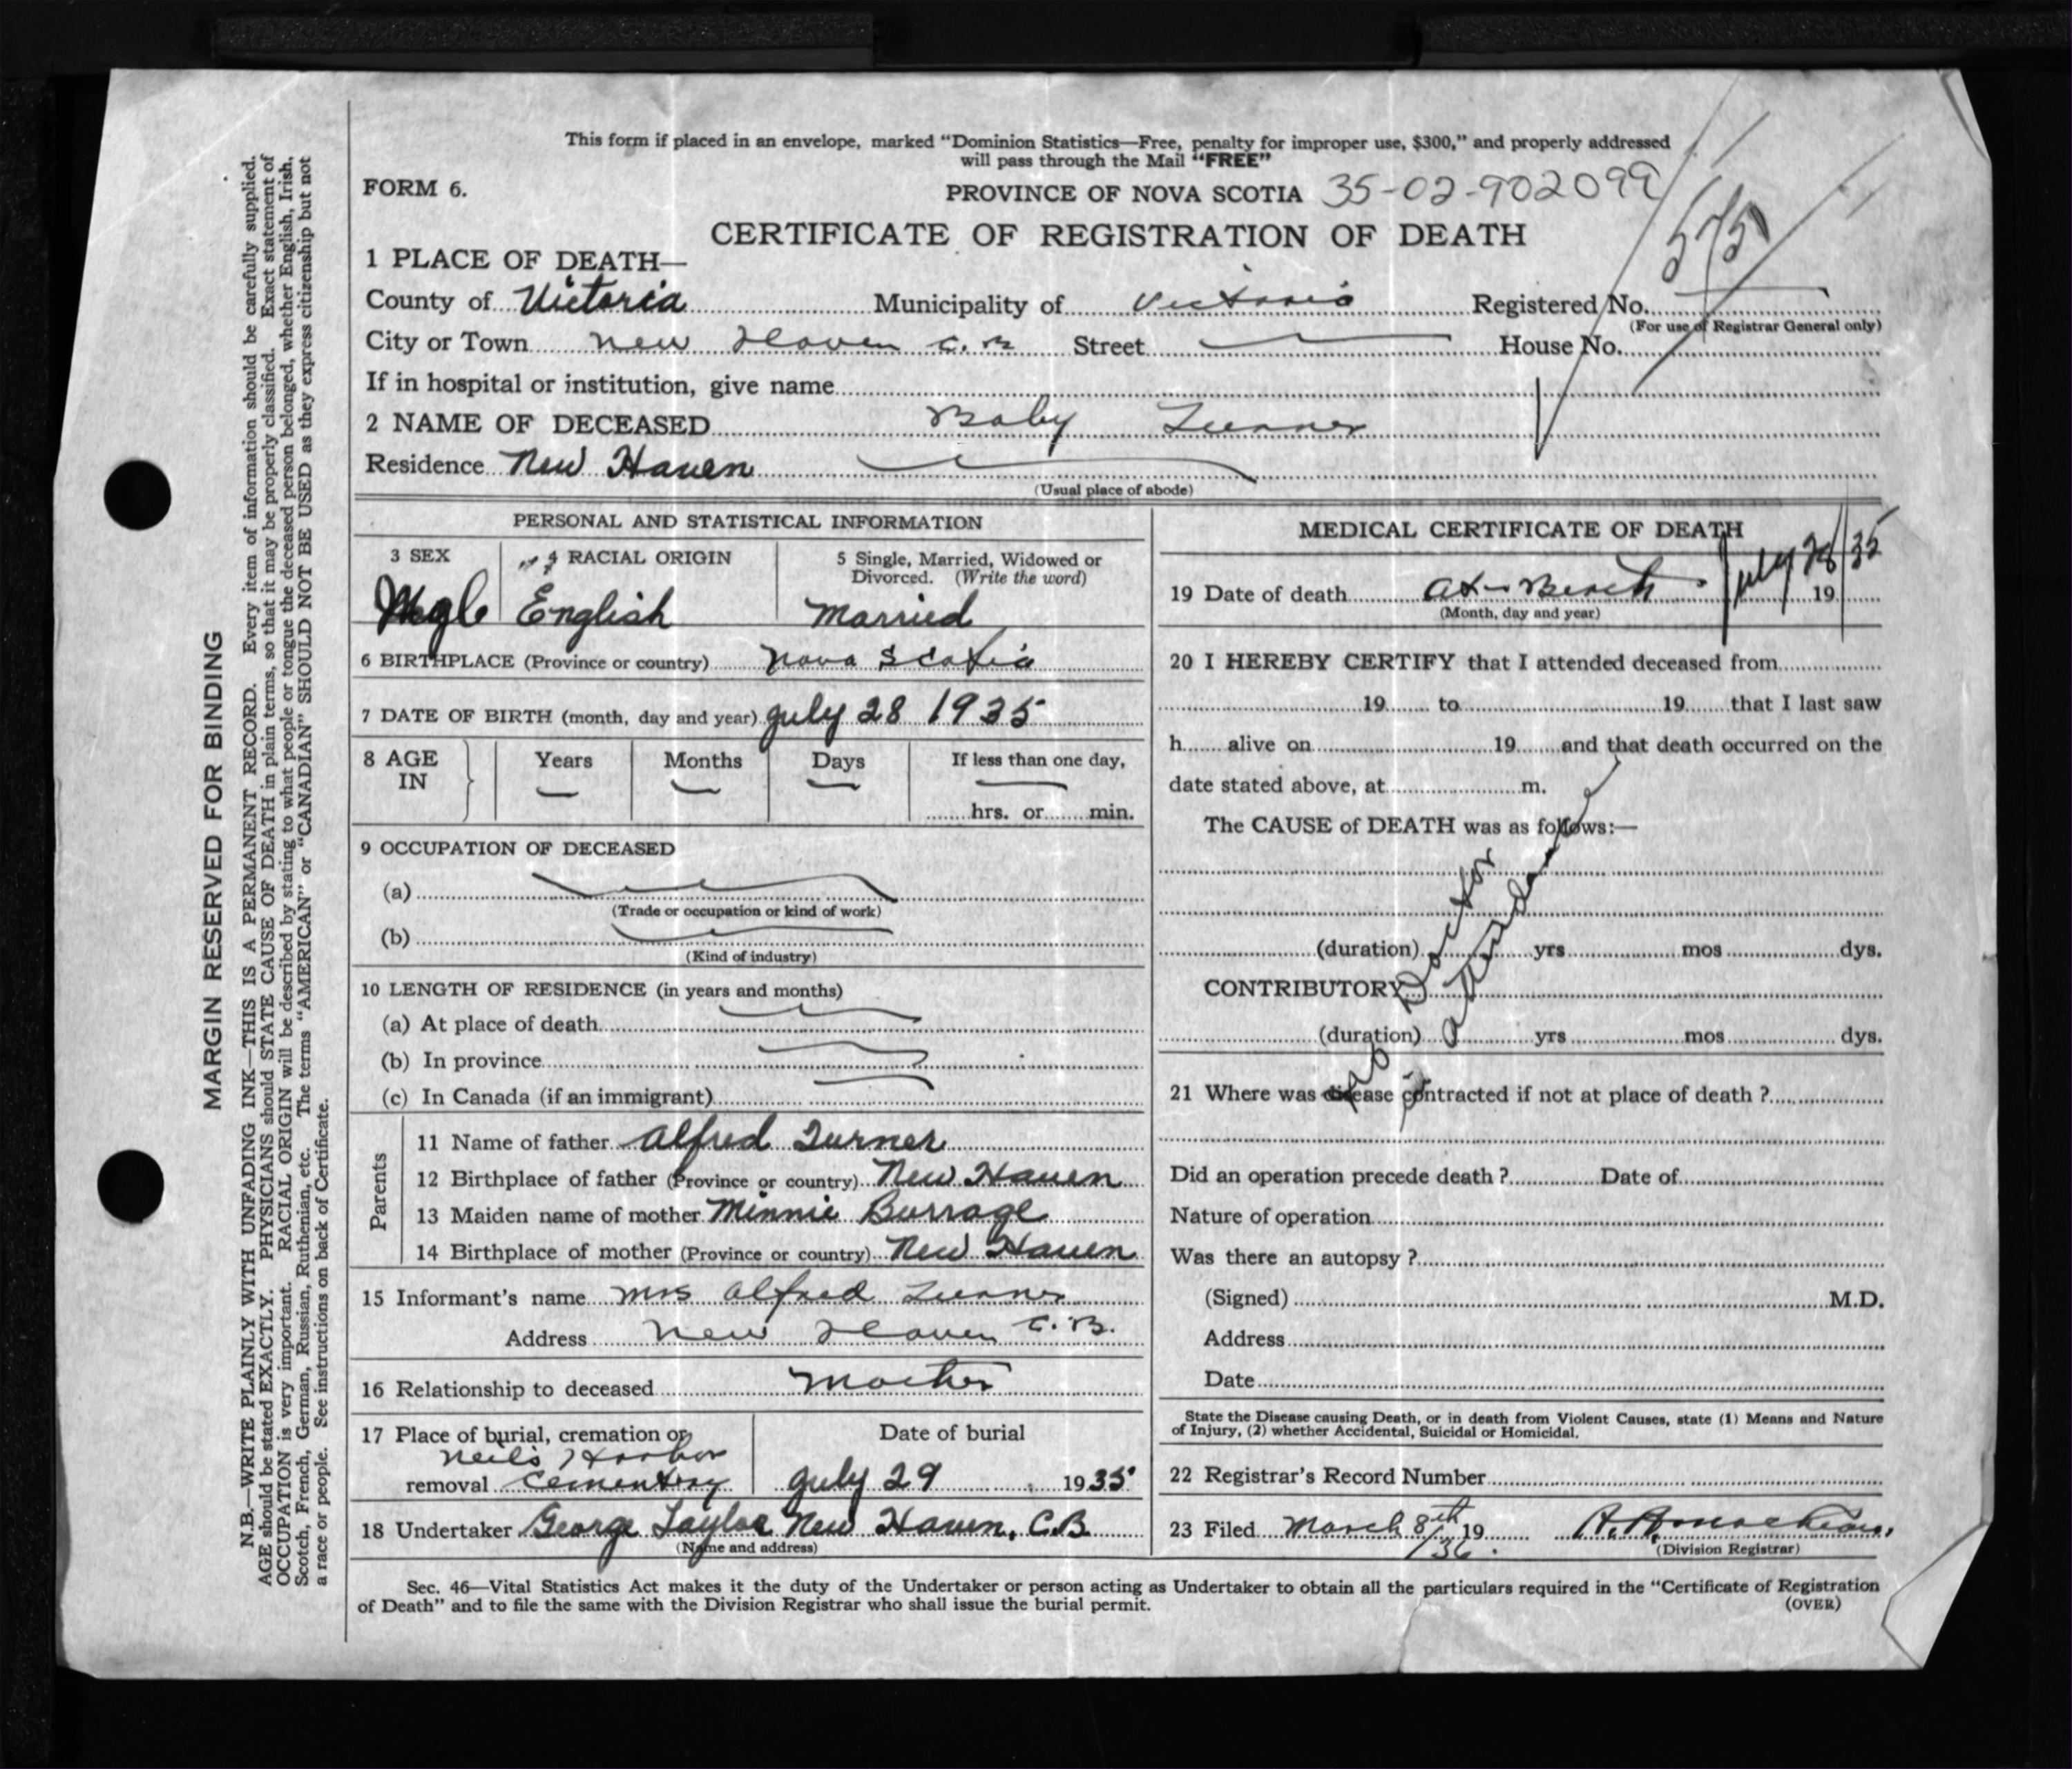 This form if placed in an envelope, marked "Dominion Statistics—Free, penalty for improper use, $300," and properly addressed
will pass through the Mail "FREE"
FORM 6.
PROVINCE OF NOVA SCOTIA 35-02-902099
CERTIFICATE OF REGISTRATION OF DEATH
1 PLACE OF DEATH—
County of Victoria Municipality of Victoria Registered No.
(For use of Registrar General only)
City or Town New Haven C. B Street House No.
If in hospital or institution, give name
2 NAME OF DECEASED Baby Turner
Residence New Haven
(Usual place of abode)
PERSONAL AND STATISTICAL INFORMATION
3 SEX 4 RACIAL ORIGIN 5 Single, Married, Widowed or
Divorced. (Write the word)
English Married
6 BIRTHPLACE (Province or country) Nova Scotia
7 DATE OF BIRTH (month, day and year) July 28 1935
8 AGE IN Years Months Days If less than one day,
hrs. or min.
9 OCCUPATION OF DECEASED
(a)
(Trade or occupation or kind of work)
(b)
(Kind of industry)
10 LENGTH OF RESIDENCE (in years and months)
(a) At place of death
(b) In province
(c) In Canada (if an immigrant)
Parents
11 Name of father Alfred Turner
12 Birthplace of father (Province or country) New Haven
13 Maiden name of mother Minnie Burrage
14 Birthplace of mother (Province or country) New Haven
15 Informant's name Mrs Alfred Turner
Address New Haven C. B.
16 Relationship to deceased Mother
17 Place of burial, cremation or Date of burial
Neil's Harbor
removal Cementery July 29 1935
18 Undertaker George Taylor New Haven, C.B.
(Name and address)
MEDICAL CERTIFICATE OF DEATH
19 Date of death At Birth July 28/35 19
(Month, day and year)
20 I HEREBY CERTIFY that I attended deceased from
19 to 19 that I last saw
h alive on 19 and that death occurred on the
date stated above, at m.
The CAUSE of DEATH was as follows:—
No Doctor
attendance
(duration) yrs mos dys.
CONTRIBUTORY
(duration) yrs mos dys.
21 Where was disease contracted if not at place of death ?
Did an operation precede death ? Date of
Nature of operation
Was there an autopsy ?
(Signed) M.D.
Address
Date
State the Disease causing Death, or in death from Violent Causes, state (1) Means and Nature
of Injury, (2) whether Accidental, Suicidal or Homicidal.
22 Registrar's Record Number
23 Filed March 8th 19
/36.
(Division Registrar)
Sec. 46—Vital Statistics Act makes it the duty of the Undertaker or person acting as Undertaker to obtain all the particulars required in the "Certificate of Registration
of Death" and to file the same with the Division Registrar who shall issue the burial permit.
(OVER)
MARGIN RESERVED FOR BINDING
N.B.—WRITE PLAINLY WITH UNFADING INK—THIS IS A PERMANENT RECORD. Every item of information should be carefully supplied.
AGE should be stated EXACTLY. PHYSICIANS should STATE CAUSE OF DEATH in plain terms, so that it may be properly classified. Exact statement of
OCCUPATION is very important. RACIAL ORIGIN will be described by stating to what people or tongue the deceased person belonged, whether English, Irish,
Scotch, French, German, Russian, Ruthenian, etc. The terms "AMERICAN" or "CANADIAN" SHOULD NOT BE USED as they express citizenship but not
a race or people. See instructions on back of Certificate.